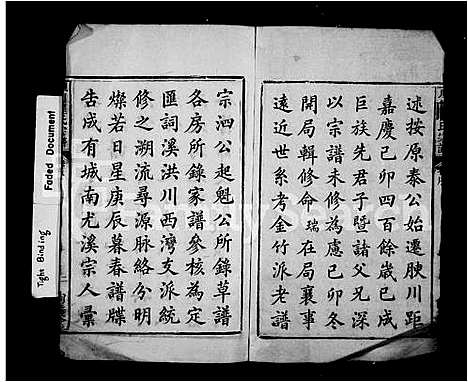 述按原泰公始遷腴川距
嘉慶己卯四百餘歲已成
巨族先君子暨諸父兄深
以宗譜未修為慮己卯冬
開局輯修命瑞在局襄事
遠近世系考金竹派老譜
宗泗公起魁公所錄草譜
各房所錄家譜參核為定
匯詞溪洪川西灣支派統
修之溯流尋源脉絡分明
燦若日星庚辰暮春譜牒
告成有城南尤溪宗人彙
Faded Document
Tight Binding